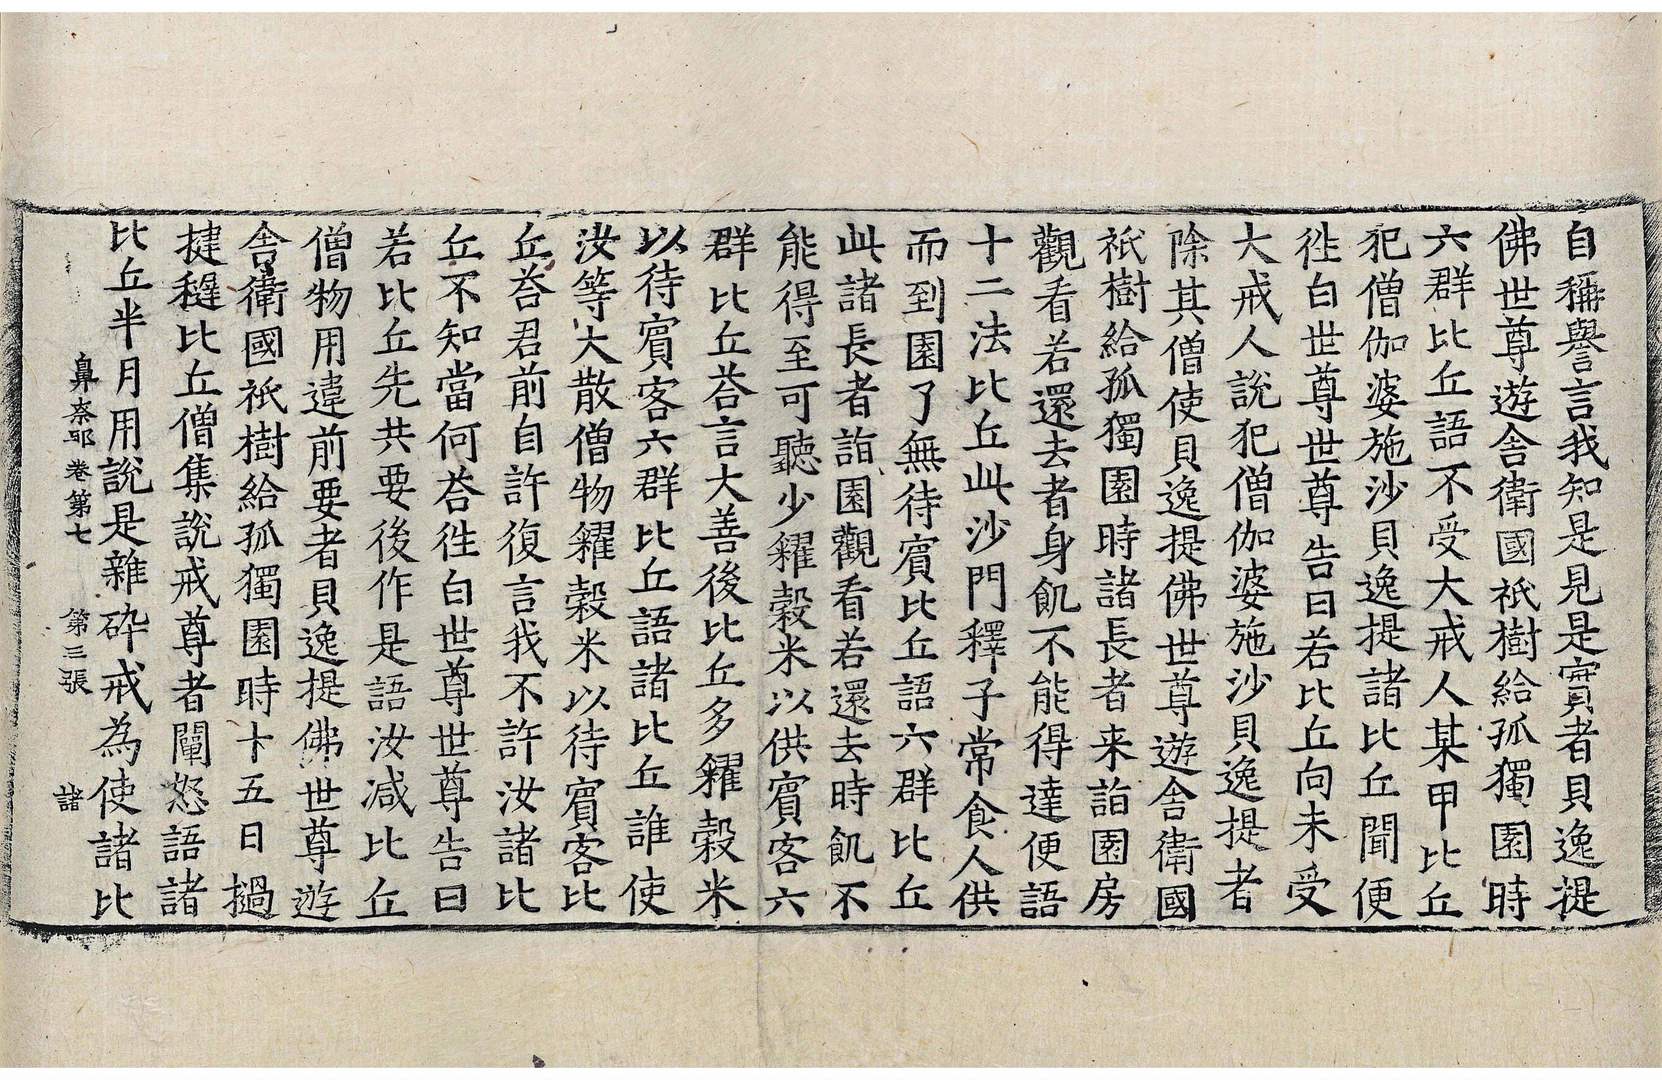 自稱譽言我知是見是實者貝逸提
佛世尊遊舎衛國祇樹給孤獨園時
六群比丘語不受大戒人某甲比丘
犯僧伽婆施沙貝逸提諸比丘聞便
徃白世尊世尊告曰若比丘向未受
大戒人說犯僧伽婆施沙貝逸提者
除其僧使貝逸提佛世尊遊舎衛國
祇樹給孤獨園時諸長者来詣園房
觀看若還去者身飢不能得達便語
十二法比丘此沙門釋子常食人供
而到園了無待賔比丘語六群比丘
此諸長者詣園觀看若還去時飢不
能得至可聽少糴糓米以供賔客六
群比丘荅言大善後比丘多糴糓米
以待賔客六群比丘語諸比丘誰使
汝等大散僧物糴糓米以待賔客比
丘荅君前自許復言我不許汝諸比
丘不知當何荅徃白世尊世尊告曰
若比丘先共要後作是語汝减比丘
僧物用違前要者貝逸提佛世尊遊
舎衛國祇樹給孤獨園時十五日撾
揵稺比丘僧集說戒尊者闡怒語諸
比丘半月用說是雜碎戒為使諸比
鼻奈耶卷第七 第三張 諸